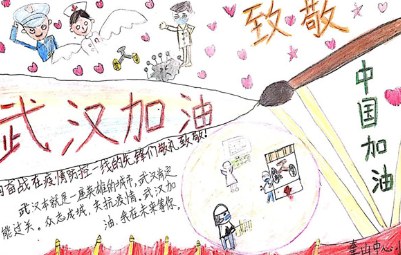 致敬
武汉加油
中国加油
向奋战在疫情防控一线的先锋们敬礼致敬!
武汉本就是一座英雄的城市,武汉肯定
能过关。众志成城,去抗疫情,武汉加
油,我在未来等你。